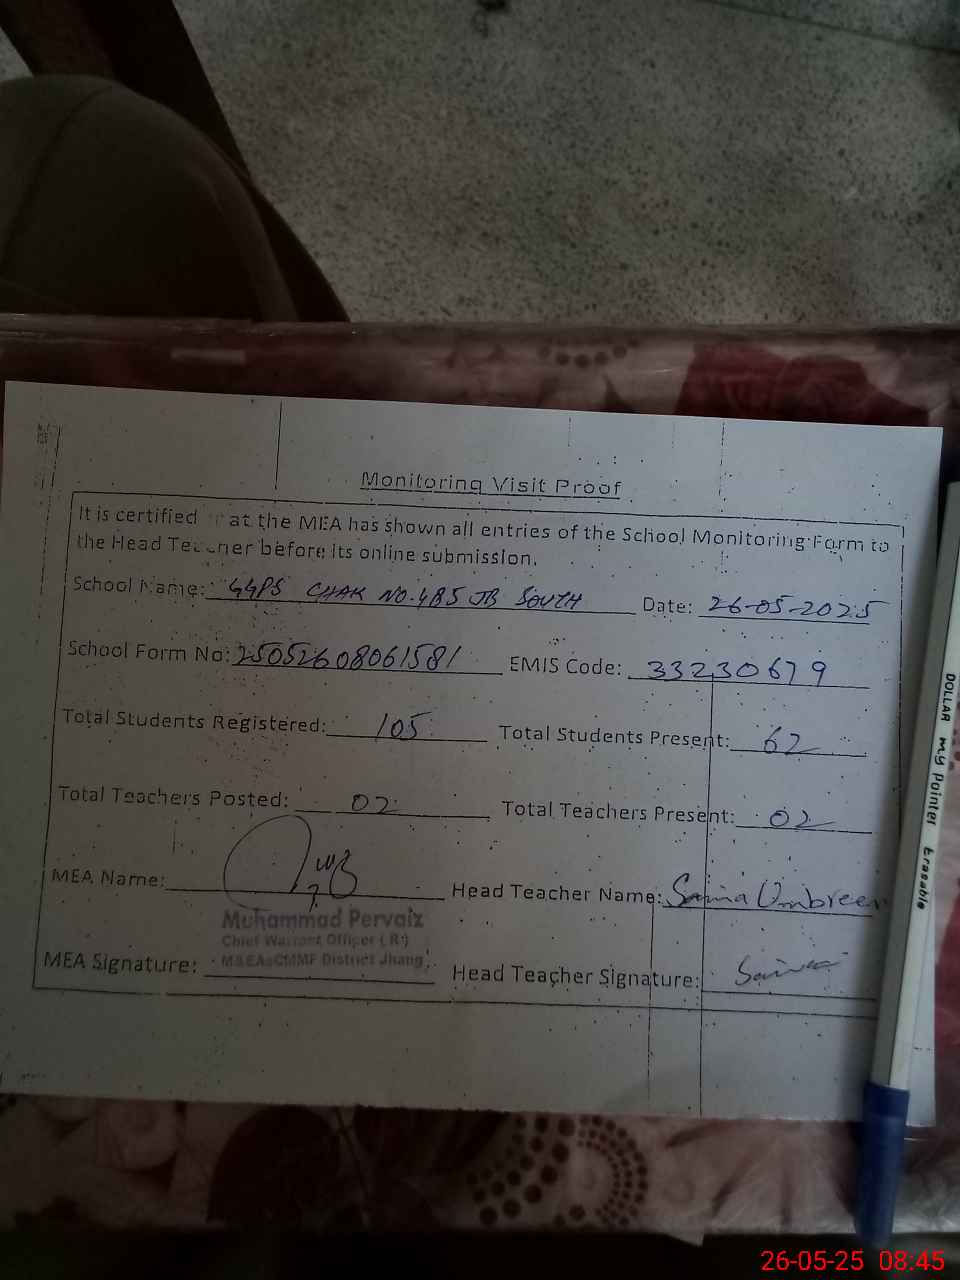 Monitoring Visit Proof
It is certified that the MEA has shown all entries of the School Monitoring Form to
the Head Teacher before its online submission.
School Name: GGPS CHAK NO.485 JB SOUTH Date: 26-05-2025
School Form No: 25052608061581 EMIS Code: 33230679
Total Students Registered: 105 Total Students Present: 62
Total Teachers Posted: 02 Total Teachers Present: 02
MEA Name: Head Teacher Name: Saima Umbreen
Muhammad Pervaiz
Chief Warrant Officer ( R )
M&EAsCMMF District Jhang
MEA Signature: Head Teacher Signature: Saima
DOLLAR my pointer Erasable
26-05-25 08:45